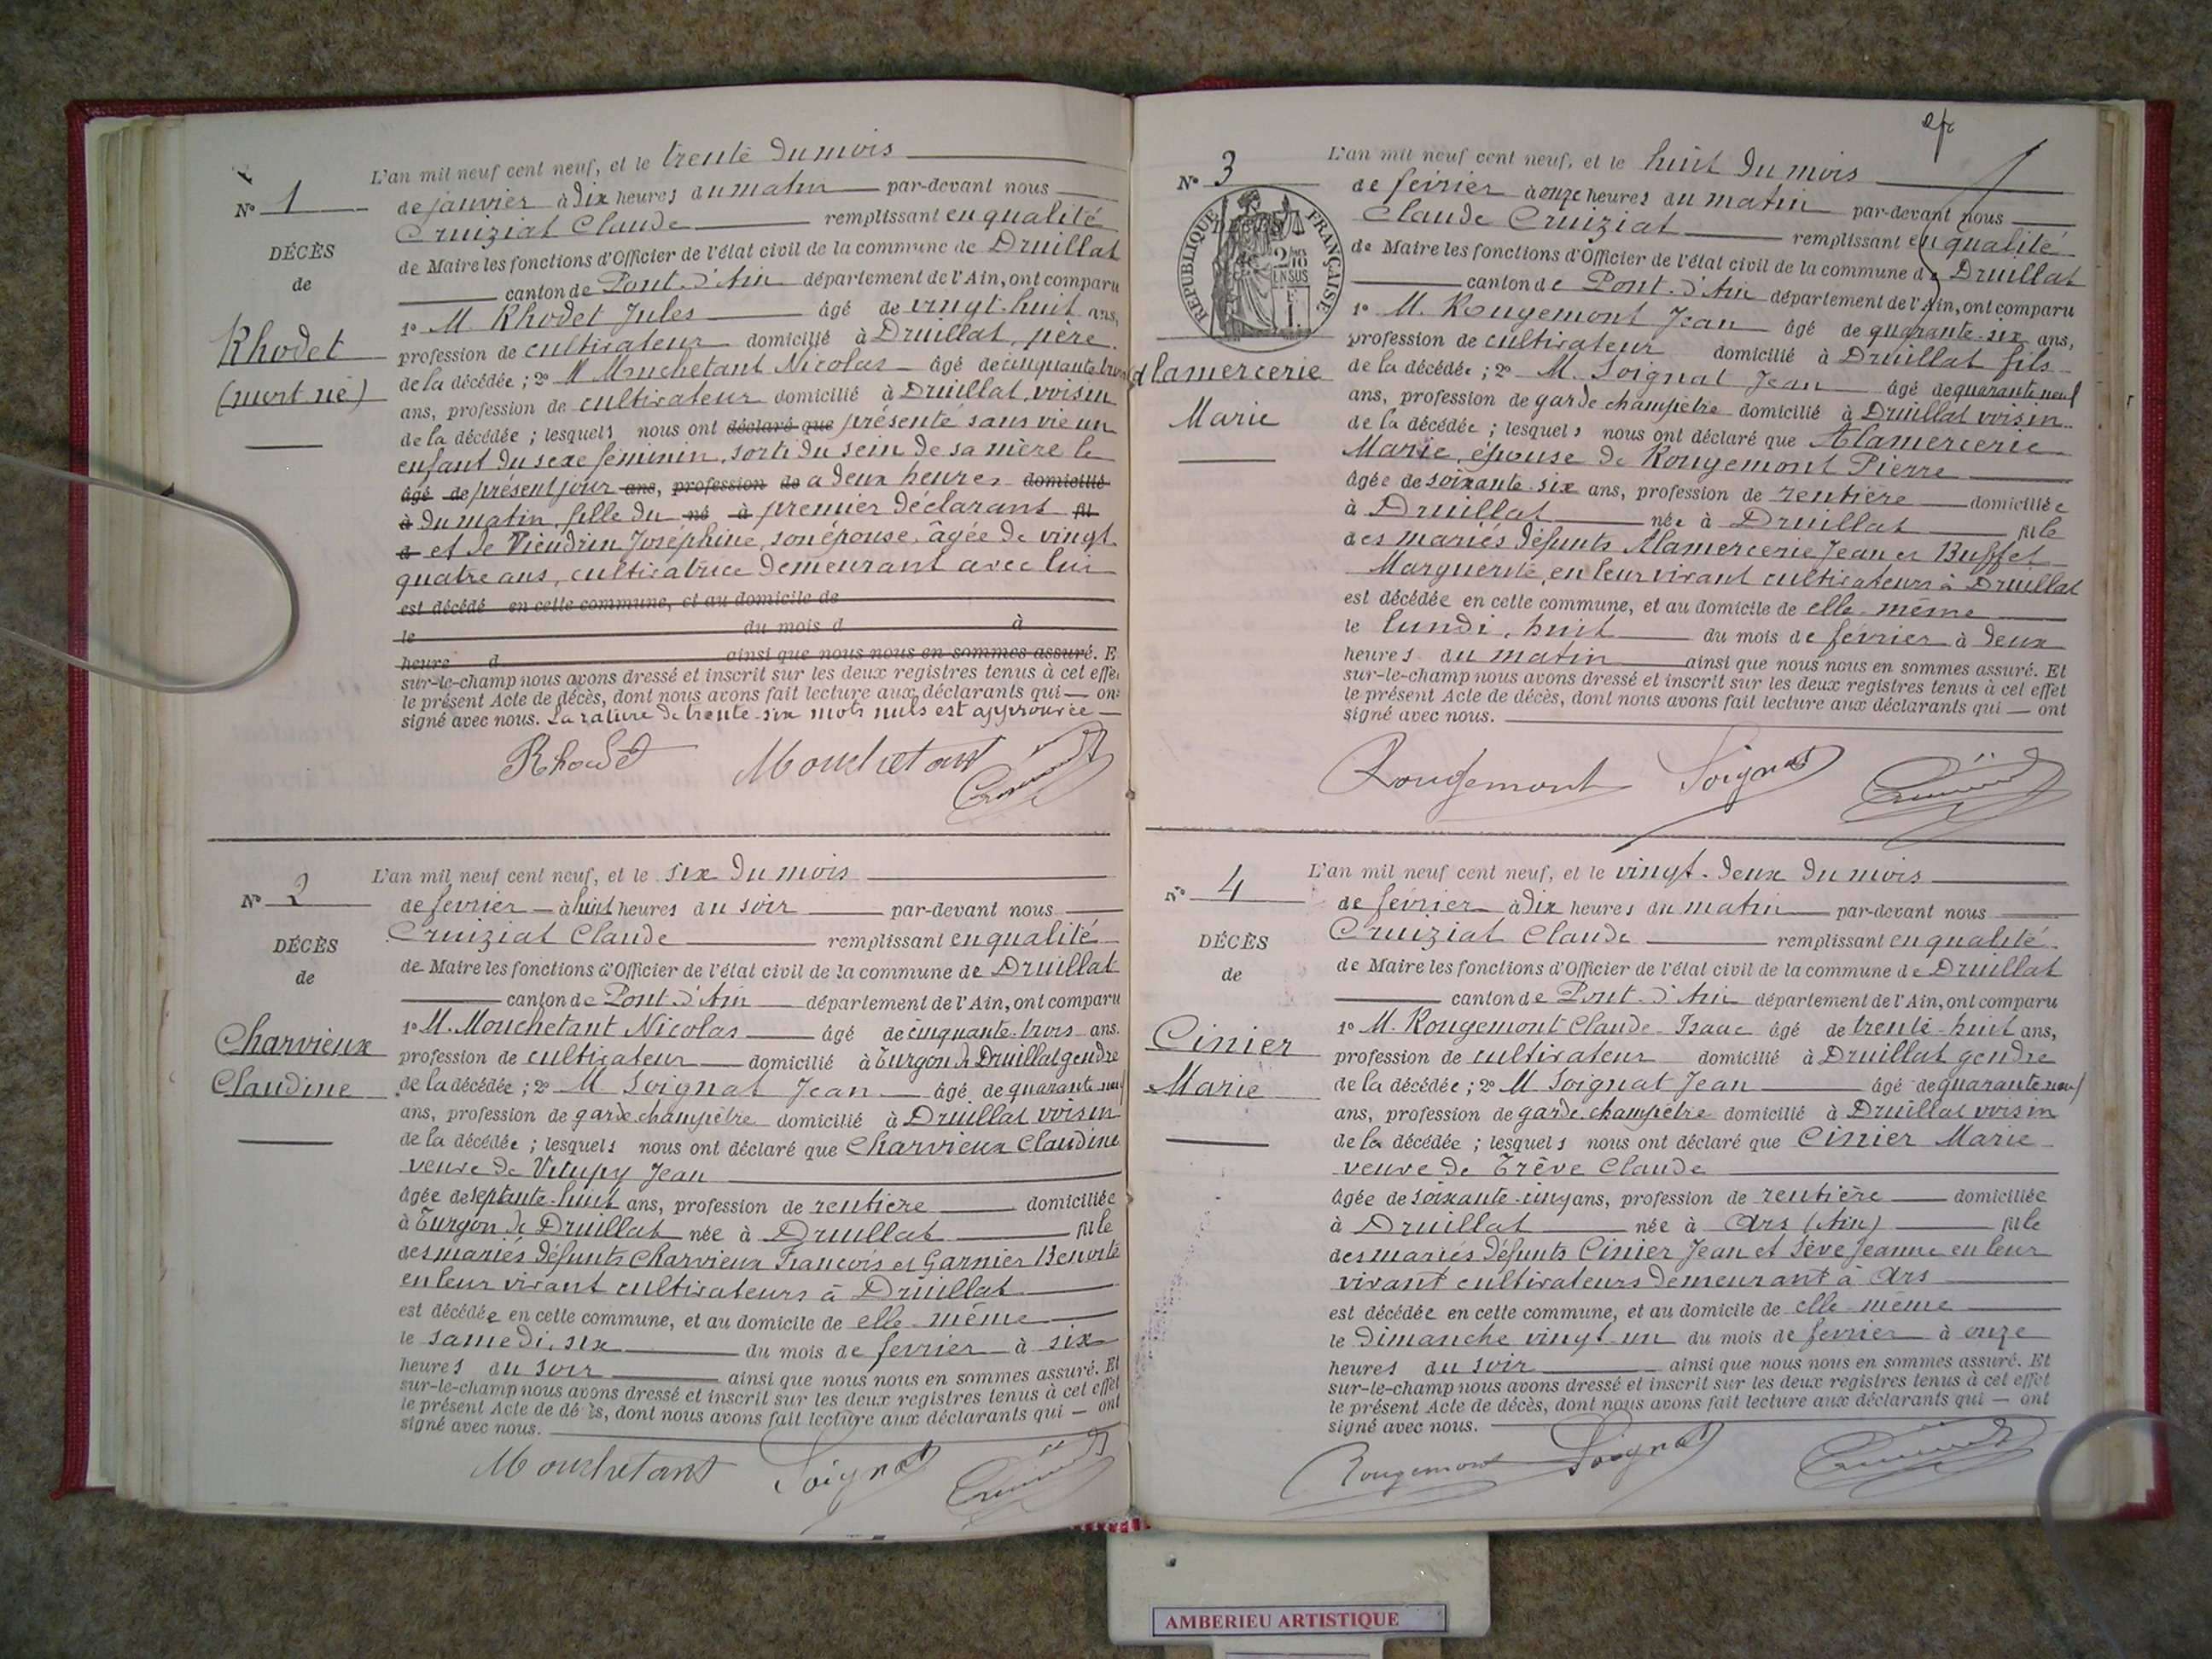 N° 1
DÉCÈS
de
Rhodet
(mort né)
L'an mil neuf cent neuf, et le trente du mois
de janvier à dix heures du matin par-devant nous
Cruiziat Claude remplissant en qualité
de Maire les fonctions d'Officier de l'état civil de la commune de Druillat
canton de Pont-d'Ain département de l'Ain, ont comparu
1° M. Rhodet Jules âgé de vingt-huit ans,
profession de cultivateur domicilié à Druillat, père
de la décédée ; 2° M Mouchetant Nicolas âgé de cinquante trois
ans, profession de cultivateur domicilié à Druillat, voisin
de la décédée ; lesquels nous ont déclaré que présenté sans vie un
enfant du sexe féminin, sorti du sein de sa mère le
âgé de présent jour ans, profession de à deux heures domicilié
à du matin, fille du né à premier déclarant fil
d et de Vieudrin Joséphine, son épouse, âgée de vingt
quatre ans, cultivatrice demeurant avec lui
est décédé en cette commune, et au domicile de
le du mois d à
heure d ainsi que nous nous en sommes assuré. E
sur-le-champ nous avons dressé et inscrit sur les deux registres tenus à cet effe
le présent Acte de décès, dont nous avons fait lecture aux déclarants qui ont
signé avec nous. La rature de trente-six mots nuls est approuvée
Rhodet Mouchetant Cruiziat
N° 2
DÉCÈS
de
Charvieux
Claudine
L'an mil neuf cent neuf, et le six du mois
de février à huit heures du soir par-devant nous
Cruiziat Claude remplissant en qualité
de Maire les fonctions d'Officier de l'état civil de la commune de Druillat
canton de Pont-d'Ain département de l'Ain, ont comparu
1° M. Mouchetant Nicolas âgé de cinquante-trois ans.
profession de cultivateur domicilié à Turgon de Druillat gendre
de la décédée ; 2° M Soignat Jean âgé de quarante neuf
ans, profession de garde champêtre domicilié à Druillat voisin
de la décédée ; lesquels nous ont déclaré que Charvieux Claudine
veuve de Vitupy Jean
âgée de septante-huit ans, profession de rentière domiciliée
à Turgon de Druillat née à Druillat fille
des mariés défunts Charvieux François et Garnier Benoite
en leur vivant cultivateurs à Druillat
est décédée en cette commune, et au domicile de elle-même
le samedi, six du mois de février à six
heures du soir ainsi que nous nous en sommes assuré. Et
sur-le-champ nous avons dressé et inscrit sur les deux registres tenus à cet effet
le présent Acte de décès, dont nous avons fait lecture aux déclarants qui ont
signé avec nous.
Mouchetant Soignat Cruiziat
N° 3
RÉPUBLIQUE FRANÇAISE
DÉCÈS
2/10 EN SUS
Alamercerie
Marie
L'an mil neuf cent neuf, et le huit du mois
de février à onze heures du matin par-devant nous
Claude Cruiziat remplissant en qualité
de Maire les fonctions d'Officier de l'état civil de la commune de Druillat
canton de Pont-d'Ain département de l'Ain, ont comparu
1° M. Rougemont Jean âgé de quarante-six ans,
profession de cultivateur domicilié à Druillat fils
de la décédée ; 2° M. Soignat Jean âgé de quarante neuf
ans, profession de garde champêtre domicilié à Druillat voisin
de la décédée ; lesquels nous ont déclaré que Alamercerie
Marie, épouse de Rougemont Pierre
âgée de soixante-six ans, profession de rentière domiciliée
à Druillat née à Druillat fille
des mariés défunts Alamercerie Jean et Buffet
Marguerite, en leur vivant cultivateurs à Druillat
est décédée en cette commune, et au domicile de elle-même
le lundi, huit du mois de février à deux
heures du matin ainsi que nous nous en sommes assuré. Et
sur-le-champ nous avons dressé et inscrit sur les deux registres tenus à cet effet
le présent Acte de décès, dont nous avons fait lecture aux déclarants qui ont
signé avec nous.
Rougemont Soignat Cruiziat
N° 4
DÉCÈS
de
Cinier
Marie
L'an mil neuf cent neuf, et le vingt-deux du mois
de février à dix heures du matin par-devant nous
Cruiziat Claude remplissant en qualité
de Maire les fonctions d'Officier de l'état civil de la commune de Druillat
canton de Pont-d'Ain département de l'Ain, ont comparu
1° M. Rougemont Claude-Isaac âgé de trente-huit ans,
profession de cultivateur domicilié à Druillat gendre
de la décédée ; 2° M Soignat Jean âgé de quarante neuf
ans, profession de garde champêtre domicilié à Druillat voisin
de la décédée ; lesquels nous ont déclaré que Cinier Marie
veuve de Trêve Claude
âgée de soixante-cinq ans, profession de rentière domiciliée
à Druillat née à Ars (Ain) fille
des mariés défunts Cinier Jean et Sève Jeanne en leur
vivant cultivateurs demeurant à Ars
est décédée en cette commune, et au domicile de elle-même
le dimanche vingt-un du mois de février à onze
heures du soir ainsi que nous nous en sommes assuré. Et
sur-le-champ nous avons dressé et inscrit sur les deux registres tenus à cet effet
le présent Acte de décès, dont nous avons fait lecture aux déclarants qui ont
signé avec nous.
Rougemont Soignat Cruiziat
AMBERIEU ARTISTIQUE